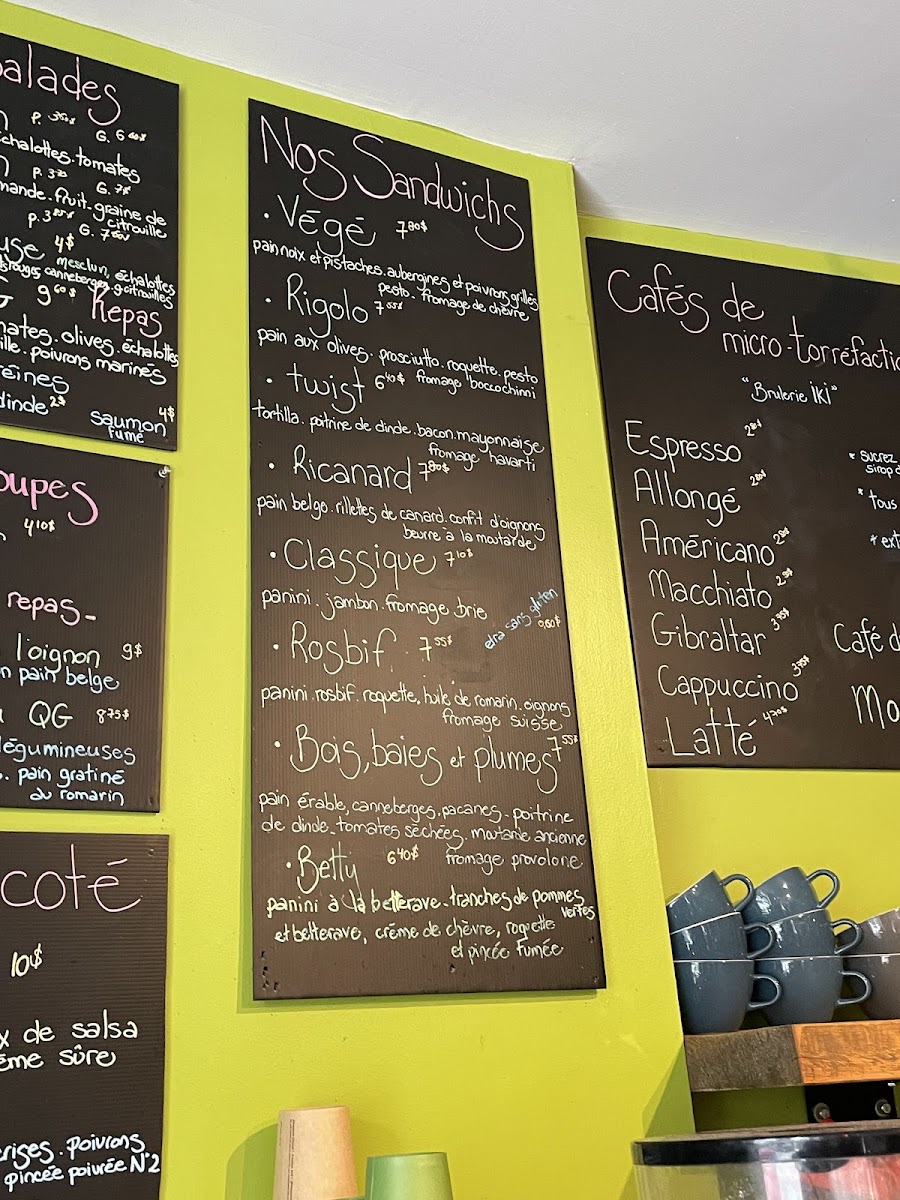 alades
P. 3⁵⁰$ G. 6⁰⁰$
échalottes. tomates
G. 7$
mande. fruit. graine de
citrouille
G. 7⁵⁰$
use 4$ mesclun, échalottes
rouges canneberges, g. citrouilles
9⁶⁰$ Repas
mates. olives. échalottes
ille. poivrons marinés
éines
dinde 2$ saumon 4$
fumé
oupes
4¹⁰$
repas-
l'oignon 9$
n pain belge
QG 8⁷⁵$
légumineuses
. pain gratiné
au romarin
coté
10$
x de salsa
ème sûre
erises. poivrons
pincée poivrée N°2
Nos Sandwichs
• Végé 7⁸⁰$
pain noix et pistaches. aubergines et poivrons grillés
pesto. fromage de chèvre
• Rigolo 7⁵⁵$
pain aux olives. prosciutto. roquette. pesto
fromage boccochinni
• twist 6⁴⁰$
tortilla. poitrine de dinde. bacon. mayonnaise.
fromage havarti
• Ricanard 7⁸⁰$
pain belge. rillettes de canard. confit d'oignons
beurre à la moutarde
• Classique 7¹⁰$
panini. jambon. fromage. brie
extra sans gluten
0,60$
• Rosbif 7⁵⁵$
panini. rosbif. roquette, huile de romarin. oignons
fromage suisse
• Bois, baies et plumes 7⁵⁵$
pain érable, canneberges. pacanes. poitrine
de dinde. tomates séchées. moutarde ancienne
fromage provolone
• Betty 6⁴⁰$
panini à la betterave. tranches de pommes
vertes
et betterave, crème de chèvre, roquette
et pincée Fumée
Cafés de
micro-torréfactio
"Brulerie iki"
Espresso
Allongé
Américano
Macchiato
Gibraltar 3⁷⁵$
Cappuccino 3⁷⁵$
Latté 4⁷⁰$
* sucrez
sirop d
* tous
* ext
Café d
Mo